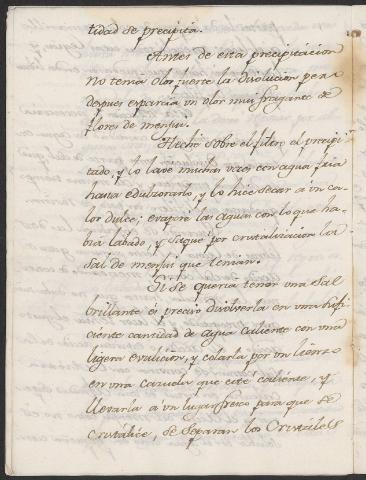 tidad se precipita.
Antes de esta precipitacion
no tenia olor fuerte la disolucion pero
despues esparcia un olor mui fragante de
flores de
Heché sobre el filtro el precipi-
tado, y lo lavé muchas veces con agua fria
hasta edulzorarlo, y lo hice secar a un ca-
lor dulce; evaporé las aguas con lo que ha-
bia labado, y saqué por cristalizacion la
sal de que tenian.
Si se queria tener una sal
brillante es preciso disolverla en una sufi-
ciente cantidad de agua caliente con una
ligera evulicion, y colarla por un lienzo
en una cazuela que esté caliente, y
llevarla a un lugar fresco para que se
cristalice, se separan los Cristales